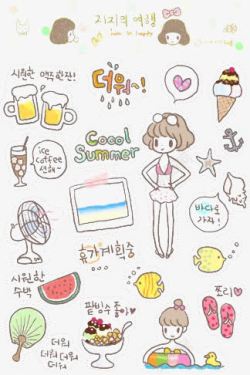 지지의 여행
시원한 맥주 한잔!
더워~!
ice
coffee
Cocol
Summer
바다로
가자!
휴가계획중
시원한
수박
팥빙수 좋아
쪼리
더워
더워 더워 더워
더워